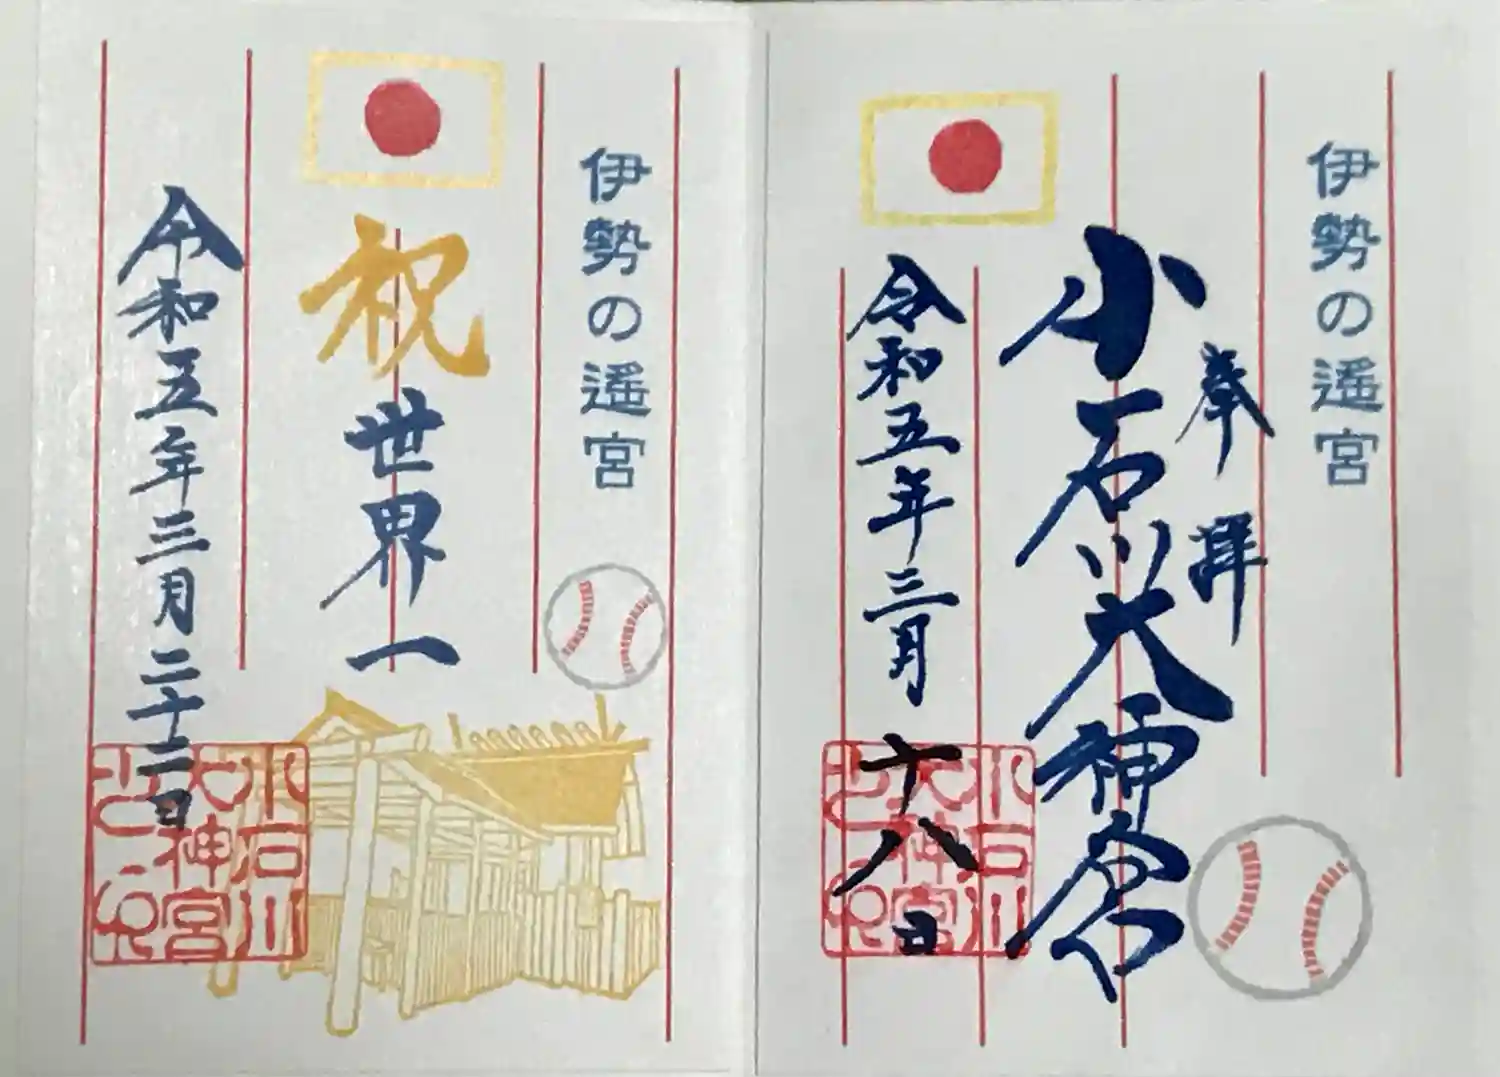 伊勢の遙宮
奉拝
小石川大神宮
令和五年三月十八日
小石川
大神宮
之印
伊勢の遙宮
祝世界一
令和五年三月二十二日
小石川
大神宮
之印